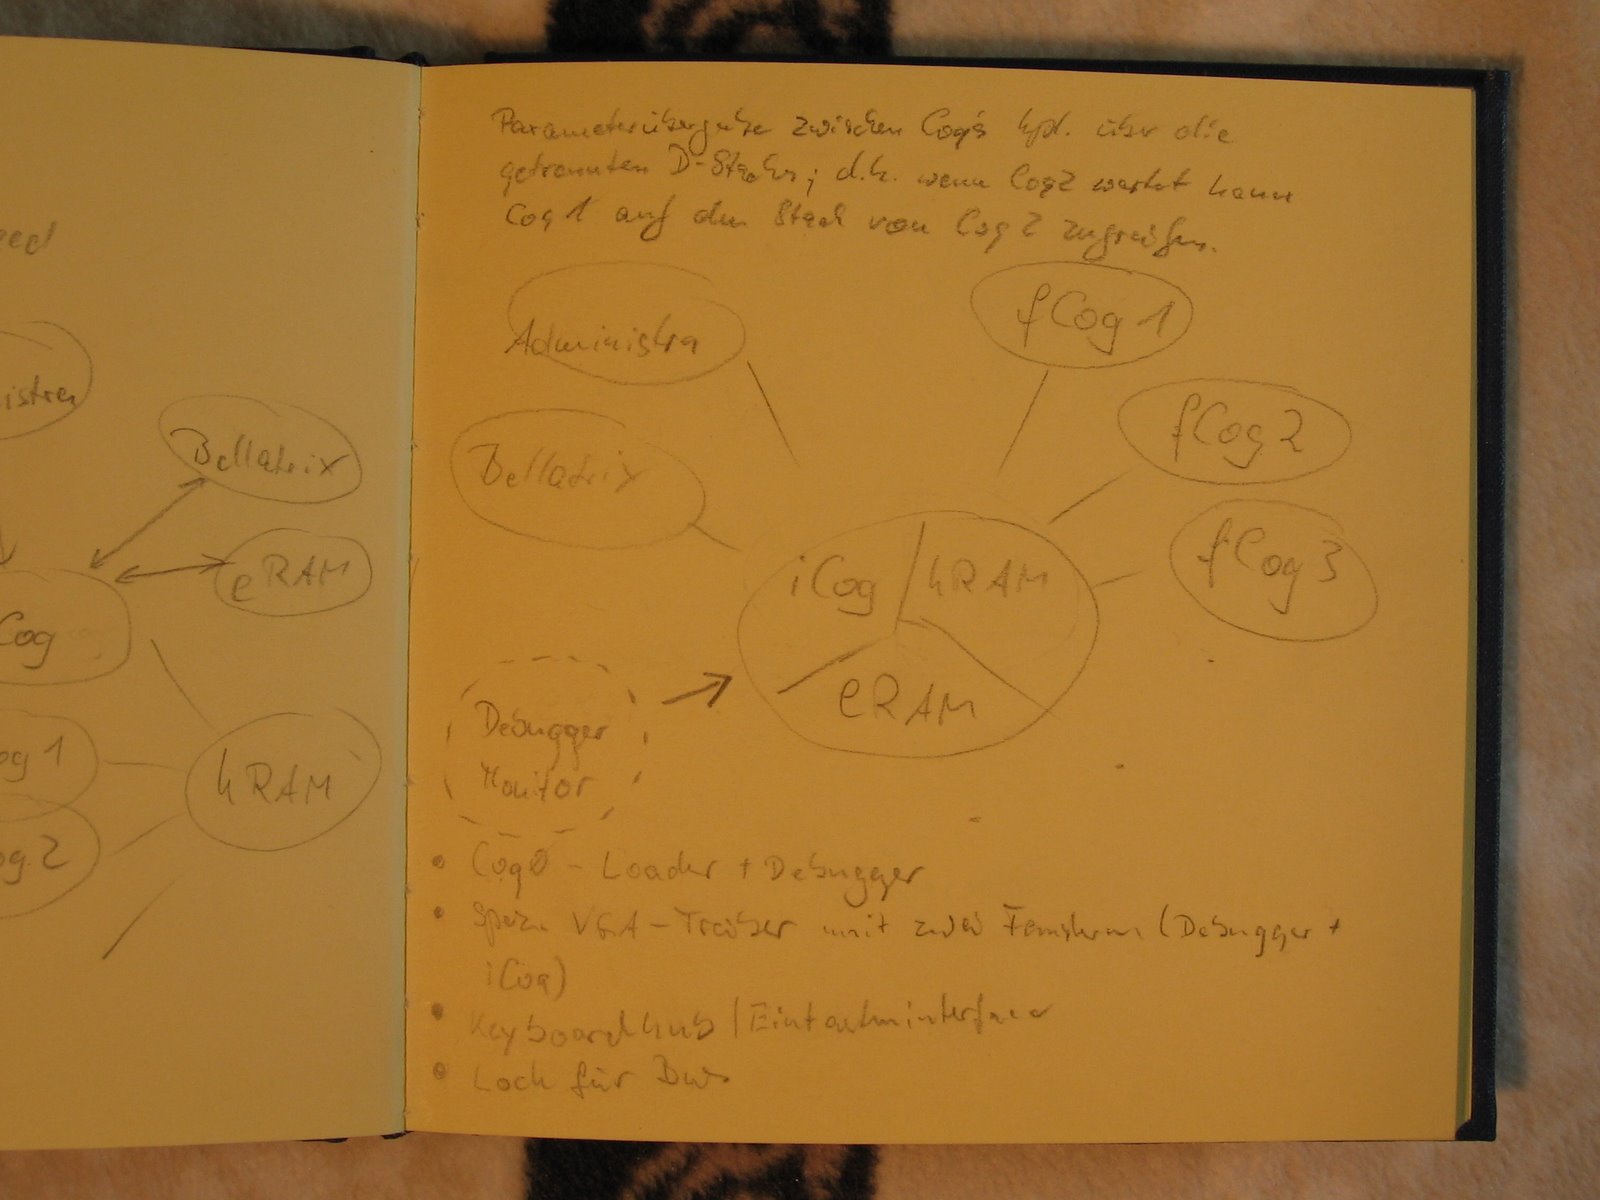 eed
istra
Bellatrix
eRAM
Cog
og 1
hRAM
og 2
Parameterübergabe zwischen Cog's kpl. über die
getrennten D-Stacks; d.h. wenn Cog2 wartet kann
Cog 1 auf den Stack von Cog 2 zugreifen.
Administra
fCog 1
Bellatrix
fCog 2
fCog 3
iCog hRAM
eRAM
Debugger
Monitor
• Cog0 - Loader + Debugger
• Spez. VGA-Treiber mit zwei Fenstern (Debugger +
iCog)
• Keyboardhub /
• Lock für Bus